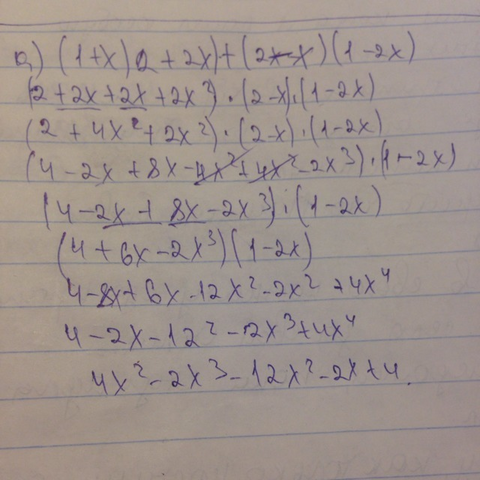 а) (1+x)(2+2x)+(2-x)(1-2x)
(2+2x+2x+2x²)·(2-x)·(1-2x)
(2+4x²+2x²)·(2-x)·(1-2x)
(4-2x+8x-4x²+4x²-2x³)·(1-2x)
(4-2x+8x-2x³)·(1-2x)
(4+6x-2x³)(1-2x)
4-8x+6x-12x²-2x²+4x⁴
4-2x-12²-2x³+4x⁴
4x²-2x³-12x²-2x+4.